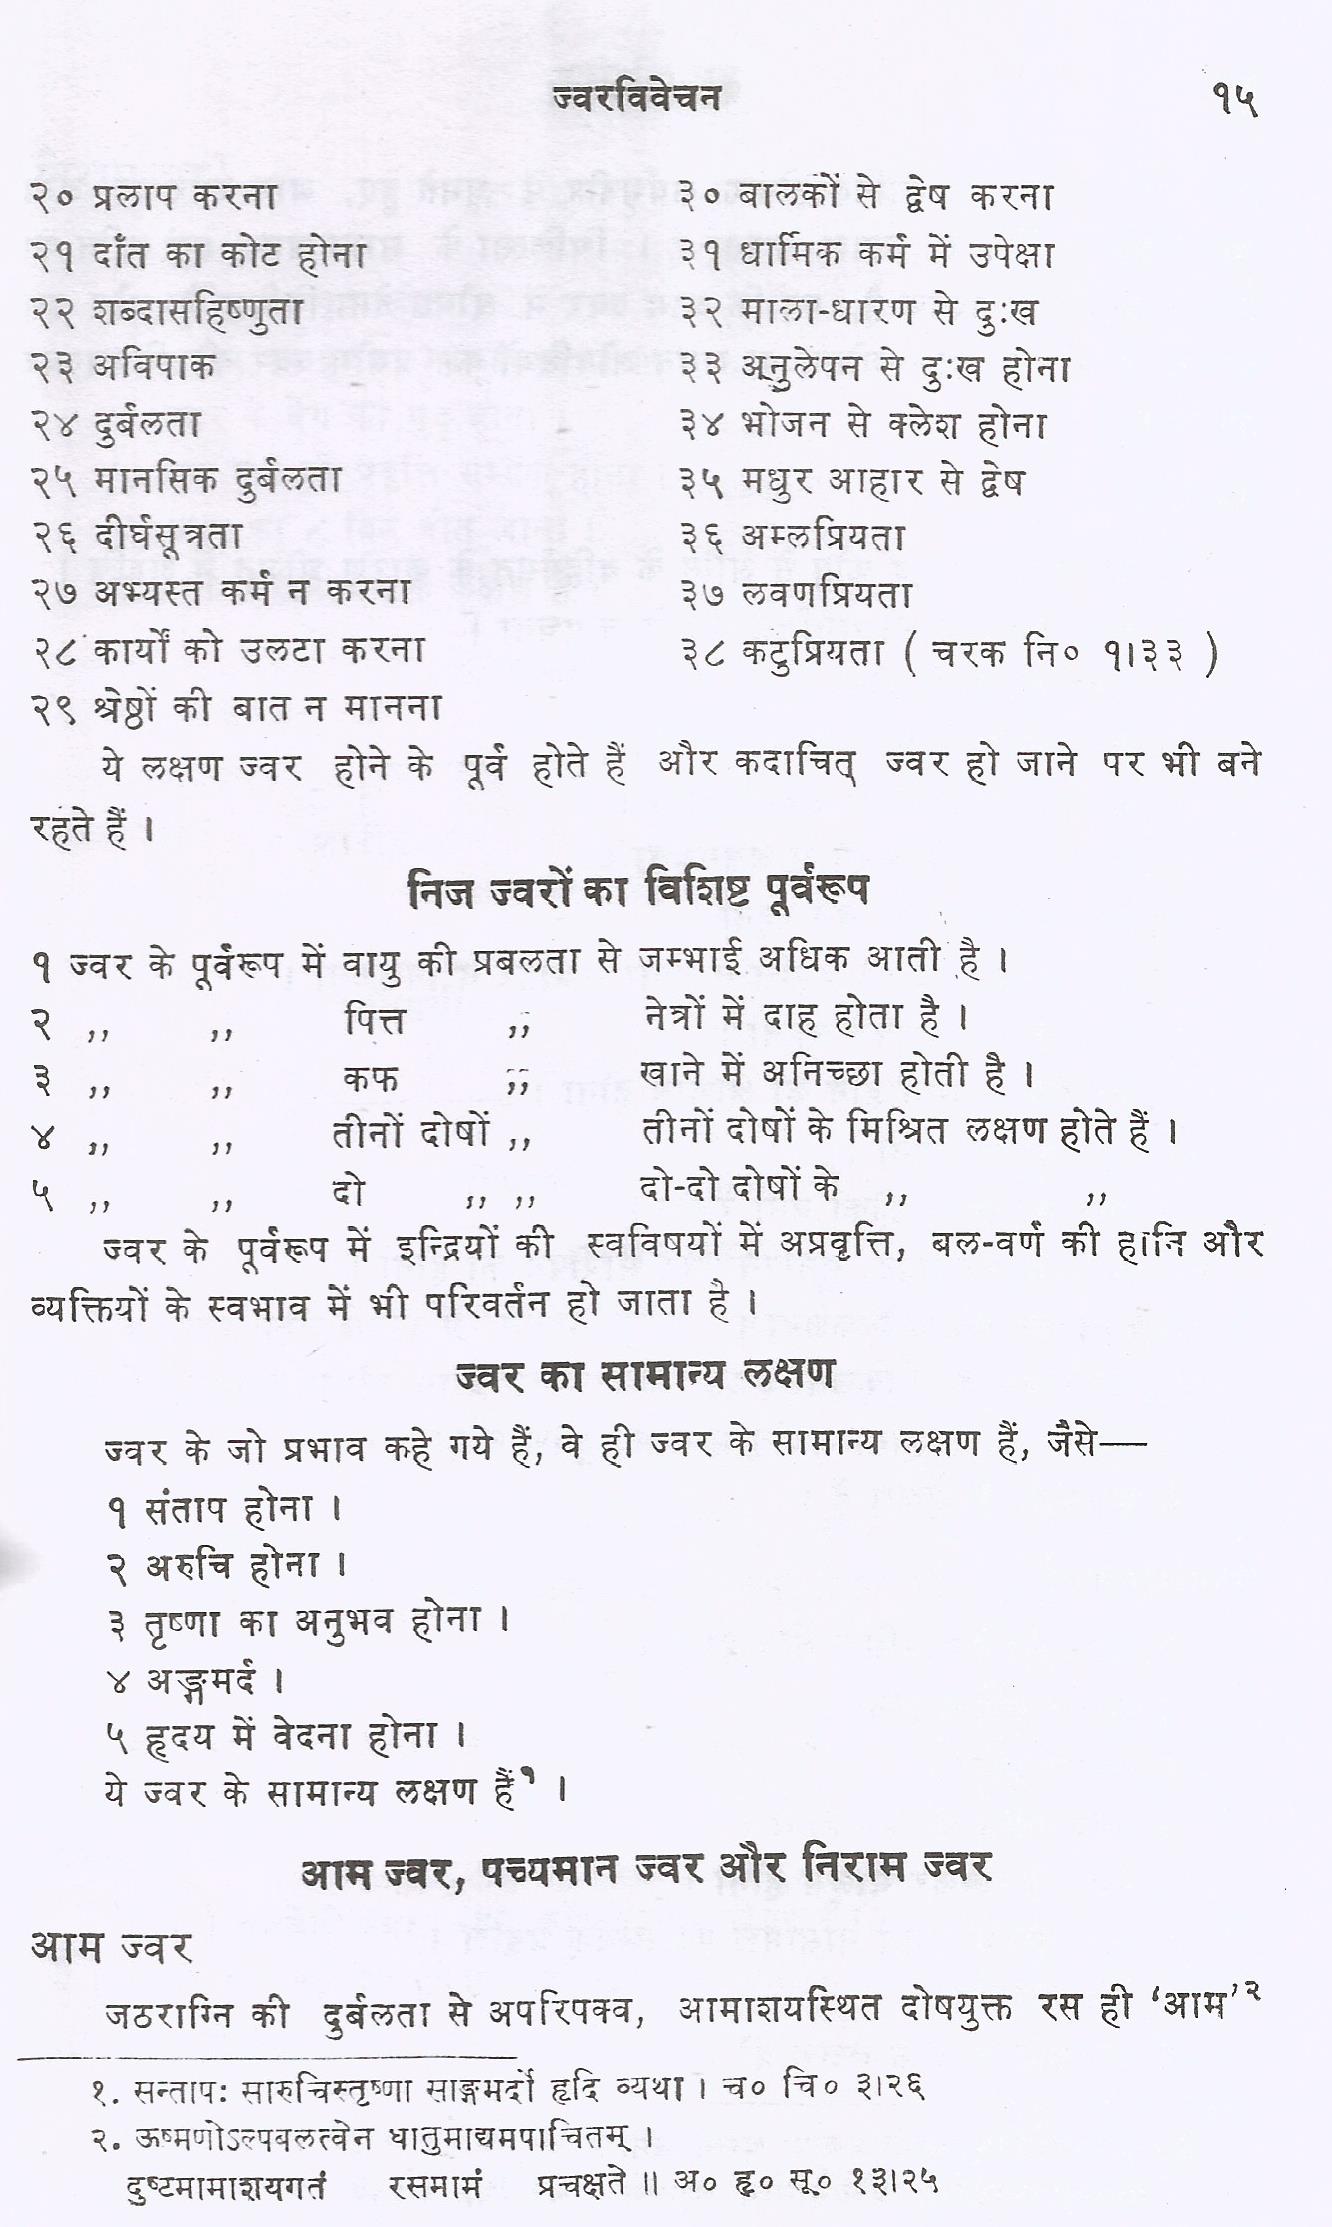 ज्वरविवेचन १५
२० प्रलाप करना
२१ दाँत का कोट होना
२२ शब्दासहिष्णुता
२३ अविपाक
२४ दुर्बलता
२५ मानसिक दुर्बलता
२६ दीर्घसूत्रता
२७ अभ्यस्त कर्म न करना
२८ कार्यों को उलटा करना
२९ श्रेष्ठों की बात न मानना
३० बालकों से द्वेष करना
३१ धार्मिक कर्म में उपेक्षा
३२ माला-धारण से दुःख
३३ अनुलेपन से दुःख होना
३४ भोजन से क्लेश होना
३५ मधुर आहार से द्वेष
३६ अम्लप्रियता
३७ लवणप्रियता
३८ कटुप्रियता ( चरक नि० १।३३ )
ये लक्षण ज्वर होने के पूर्व होते हैं और कदाचित् ज्वर हो जाने पर भी बने
रहते हैं ।
निज ज्वरों का विशिष्ट पूर्वरूप
१ ज्वर के पूर्वरूप में वायु की प्रबलता से जम्भाई अधिक आती है ।
२ ,, ,, पित्त ,, नेत्रों में दाह होता है ।
३ ,, ,, कफ ,, खाने में अनिच्छा होती है ।
४ ,, ,, तीनों दोषों ,, तीनों दोषों के मिश्रित लक्षण होते हैं ।
५ ,, ,, दो ,, ,, दो-दो दोषों के ,, ,,
ज्वर के पूर्वरूप में इन्द्रियों की स्वविषयों में अप्रवृत्ति, बल-वर्ण की हानि और
व्यक्तियों के स्वभाव में भी परिवर्तन हो जाता है ।
ज्वर का सामान्य लक्षण
ज्वर के जो प्रभाव कहे गये हैं, वे ही ज्वर के सामान्य लक्षण हैं, जैसे—
१ संताप होना ।
२ अरुचि होना ।
३ तृष्णा का अनुभव होना ।
४ अङ्गमर्द ।
५ हृदय में वेदना होना ।
ये ज्वर के सामान्य लक्षण हैं१ ।
आम ज्वर, पच्यमान ज्वर और निराम ज्वर
आम ज्वर
जठराग्नि की दुर्बलता से अपरिपक्व, आमाशयस्थित दोषयुक्त रस ही ‘आम’२
१. सन्तापः सारुचिस्तृष्णा साङ्गमर्दो हृदि व्यथा । च० चि० ३।२६
२. ऊष्मणोऽल्पबलत्वेन धातुमाद्यमपाचितम् ।
दुष्टमामाशयगतं रसमामं प्रचक्षते ॥ अ० हृ० सू० १३।२५